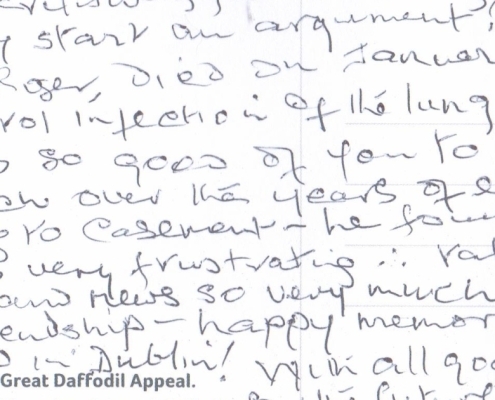 start an argument
Roger, died on Januar
infection of the lung
so good of you to
over the years of
to Casement - he fou
very frustrating ∴ val
and news so very much
endship - happy memor
in Dublin! With all goo
Great Daffodil Appeal.